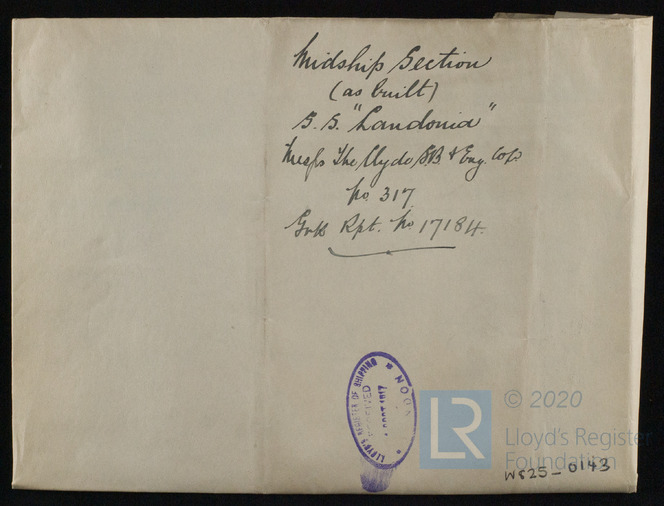 Midship Section
(as built)
S.S. "Landonia"
Messrs The Clyde S.B. & Eng. Co's
No. 317
Grk Rpt. No. 17184.
LLOYD'S REGISTER OF SHIPPING
RECEIVED
OCT 1917
NOON
LR
© 2020
Lloyd's Register
Foundation
W825_0143